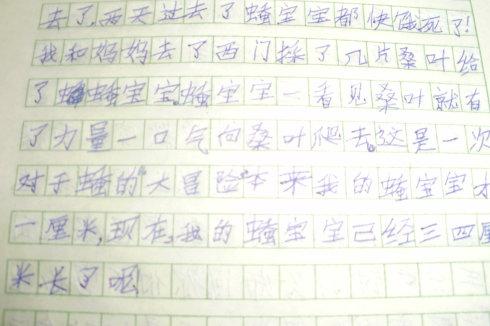 去了,两天过去了蚕宝宝都快饿死了!
我和妈妈去了西门採了几片桑叶给
了蚕宝宝,蚕宝宝一看见桑叶就有
了力量一口气向桑叶爬去。这是一次
对于蚕的“大冒险”本来我的蚕宝宝才
一厘米,现在,我的蚕宝宝已经三四厘
米长了呢